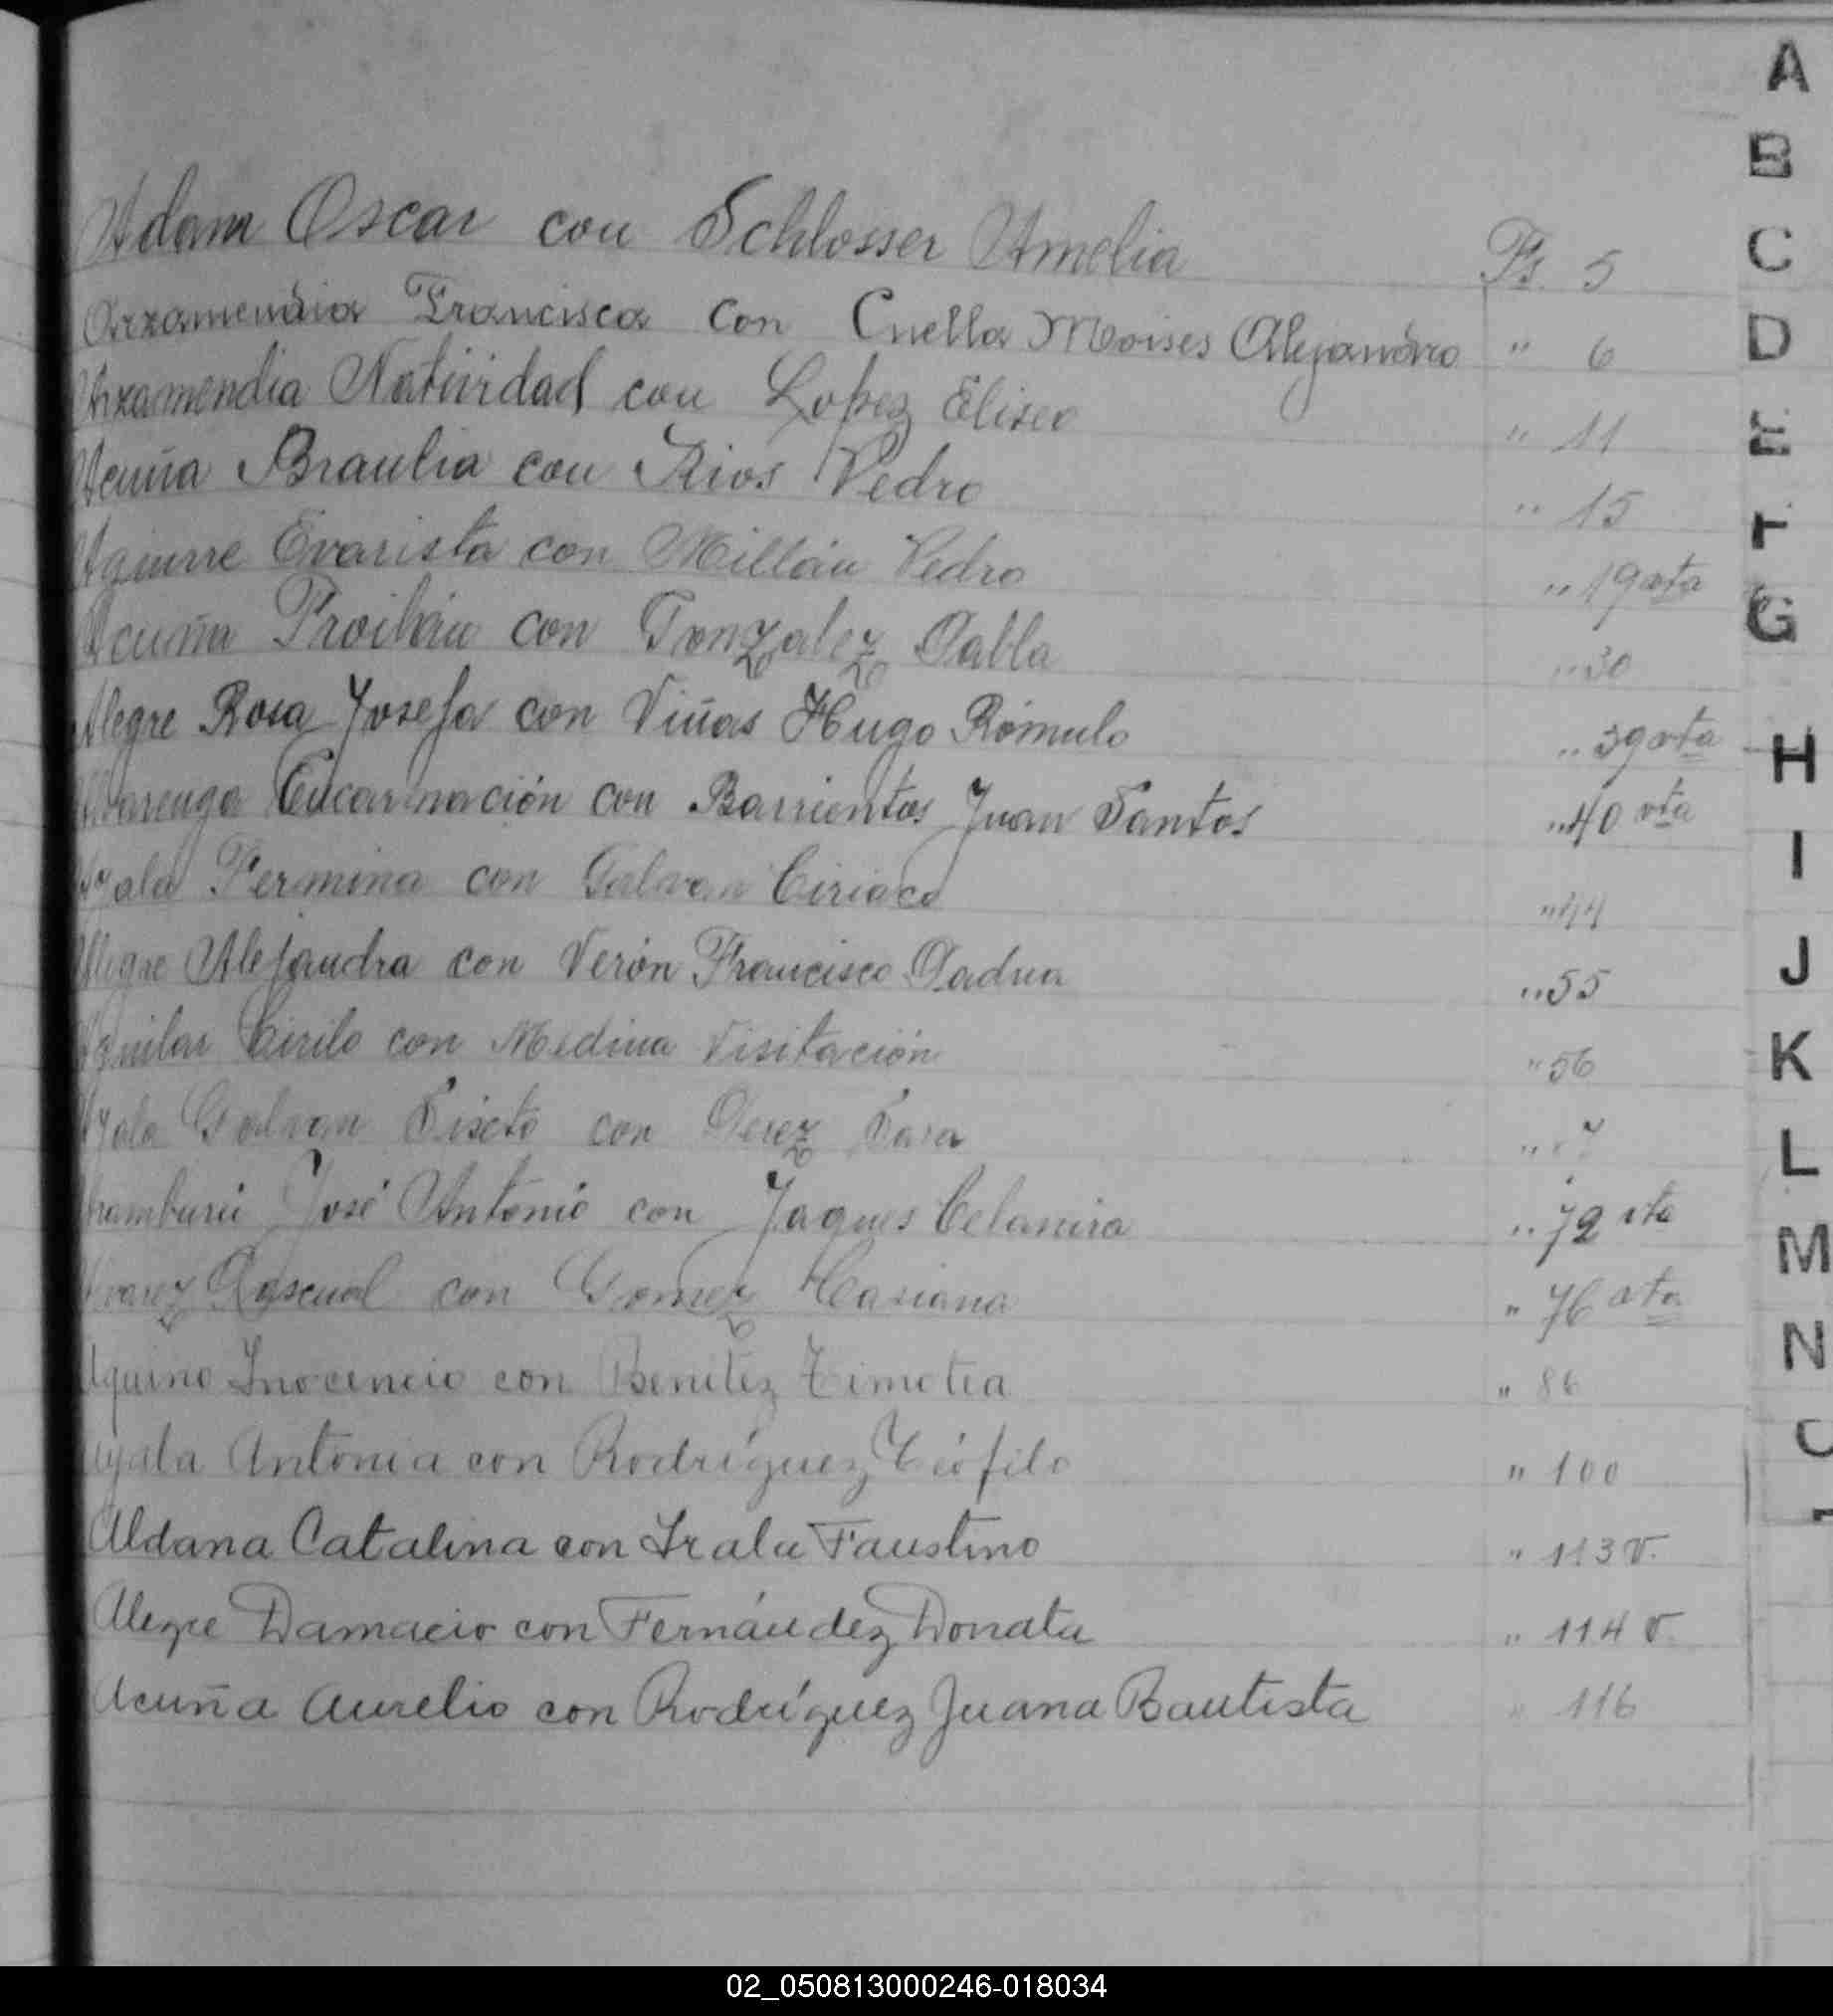 Adam Oscar con Schlosser Amelia Fs. 5
Arzamendia Francisca con Cuella Moises Alejandro " 6
Arzamendia Natividad con Lopez Eliseo " 11
Acuña Braulia con Rios Pedro " 15
Aguirre Evarista con Millán Pedro " 19 vta
Acuña Froilán con Gonzalez Pabla " 30
Alegre Rosa Josefa con Viñas Hugo Rómulo " 39 vta
Alvarenga Encarnación con Barrientos Juan Santos " 40 vta
Ayala Fermina con Galvan Ciriaco " 44
Alegre Alejandra con Verón Francisco Padua " 55
Aguilar Cirilo con Medina Visitación " 56
Ayala Galvan Sixto con Perez Sara "
José Antonio con Jaques Celanira " 72 vta
Alvarez Pascual con Gomez Casiana " 76 vta
Aquino Inocencio con Benitez Timotea " 86
Ayala Antonia con Rodríguez Teófilo " 100
Aldana Catalina con Irala Faustino " 113 V.
Alegre Damacio con Fernández Donata " 114 V.
Acuña Aurelio con Rodríguez Juana Bautista " 116
A
B
C
D
E
F
G
H
I
J
K
L
M
N
02_050813000246-018034